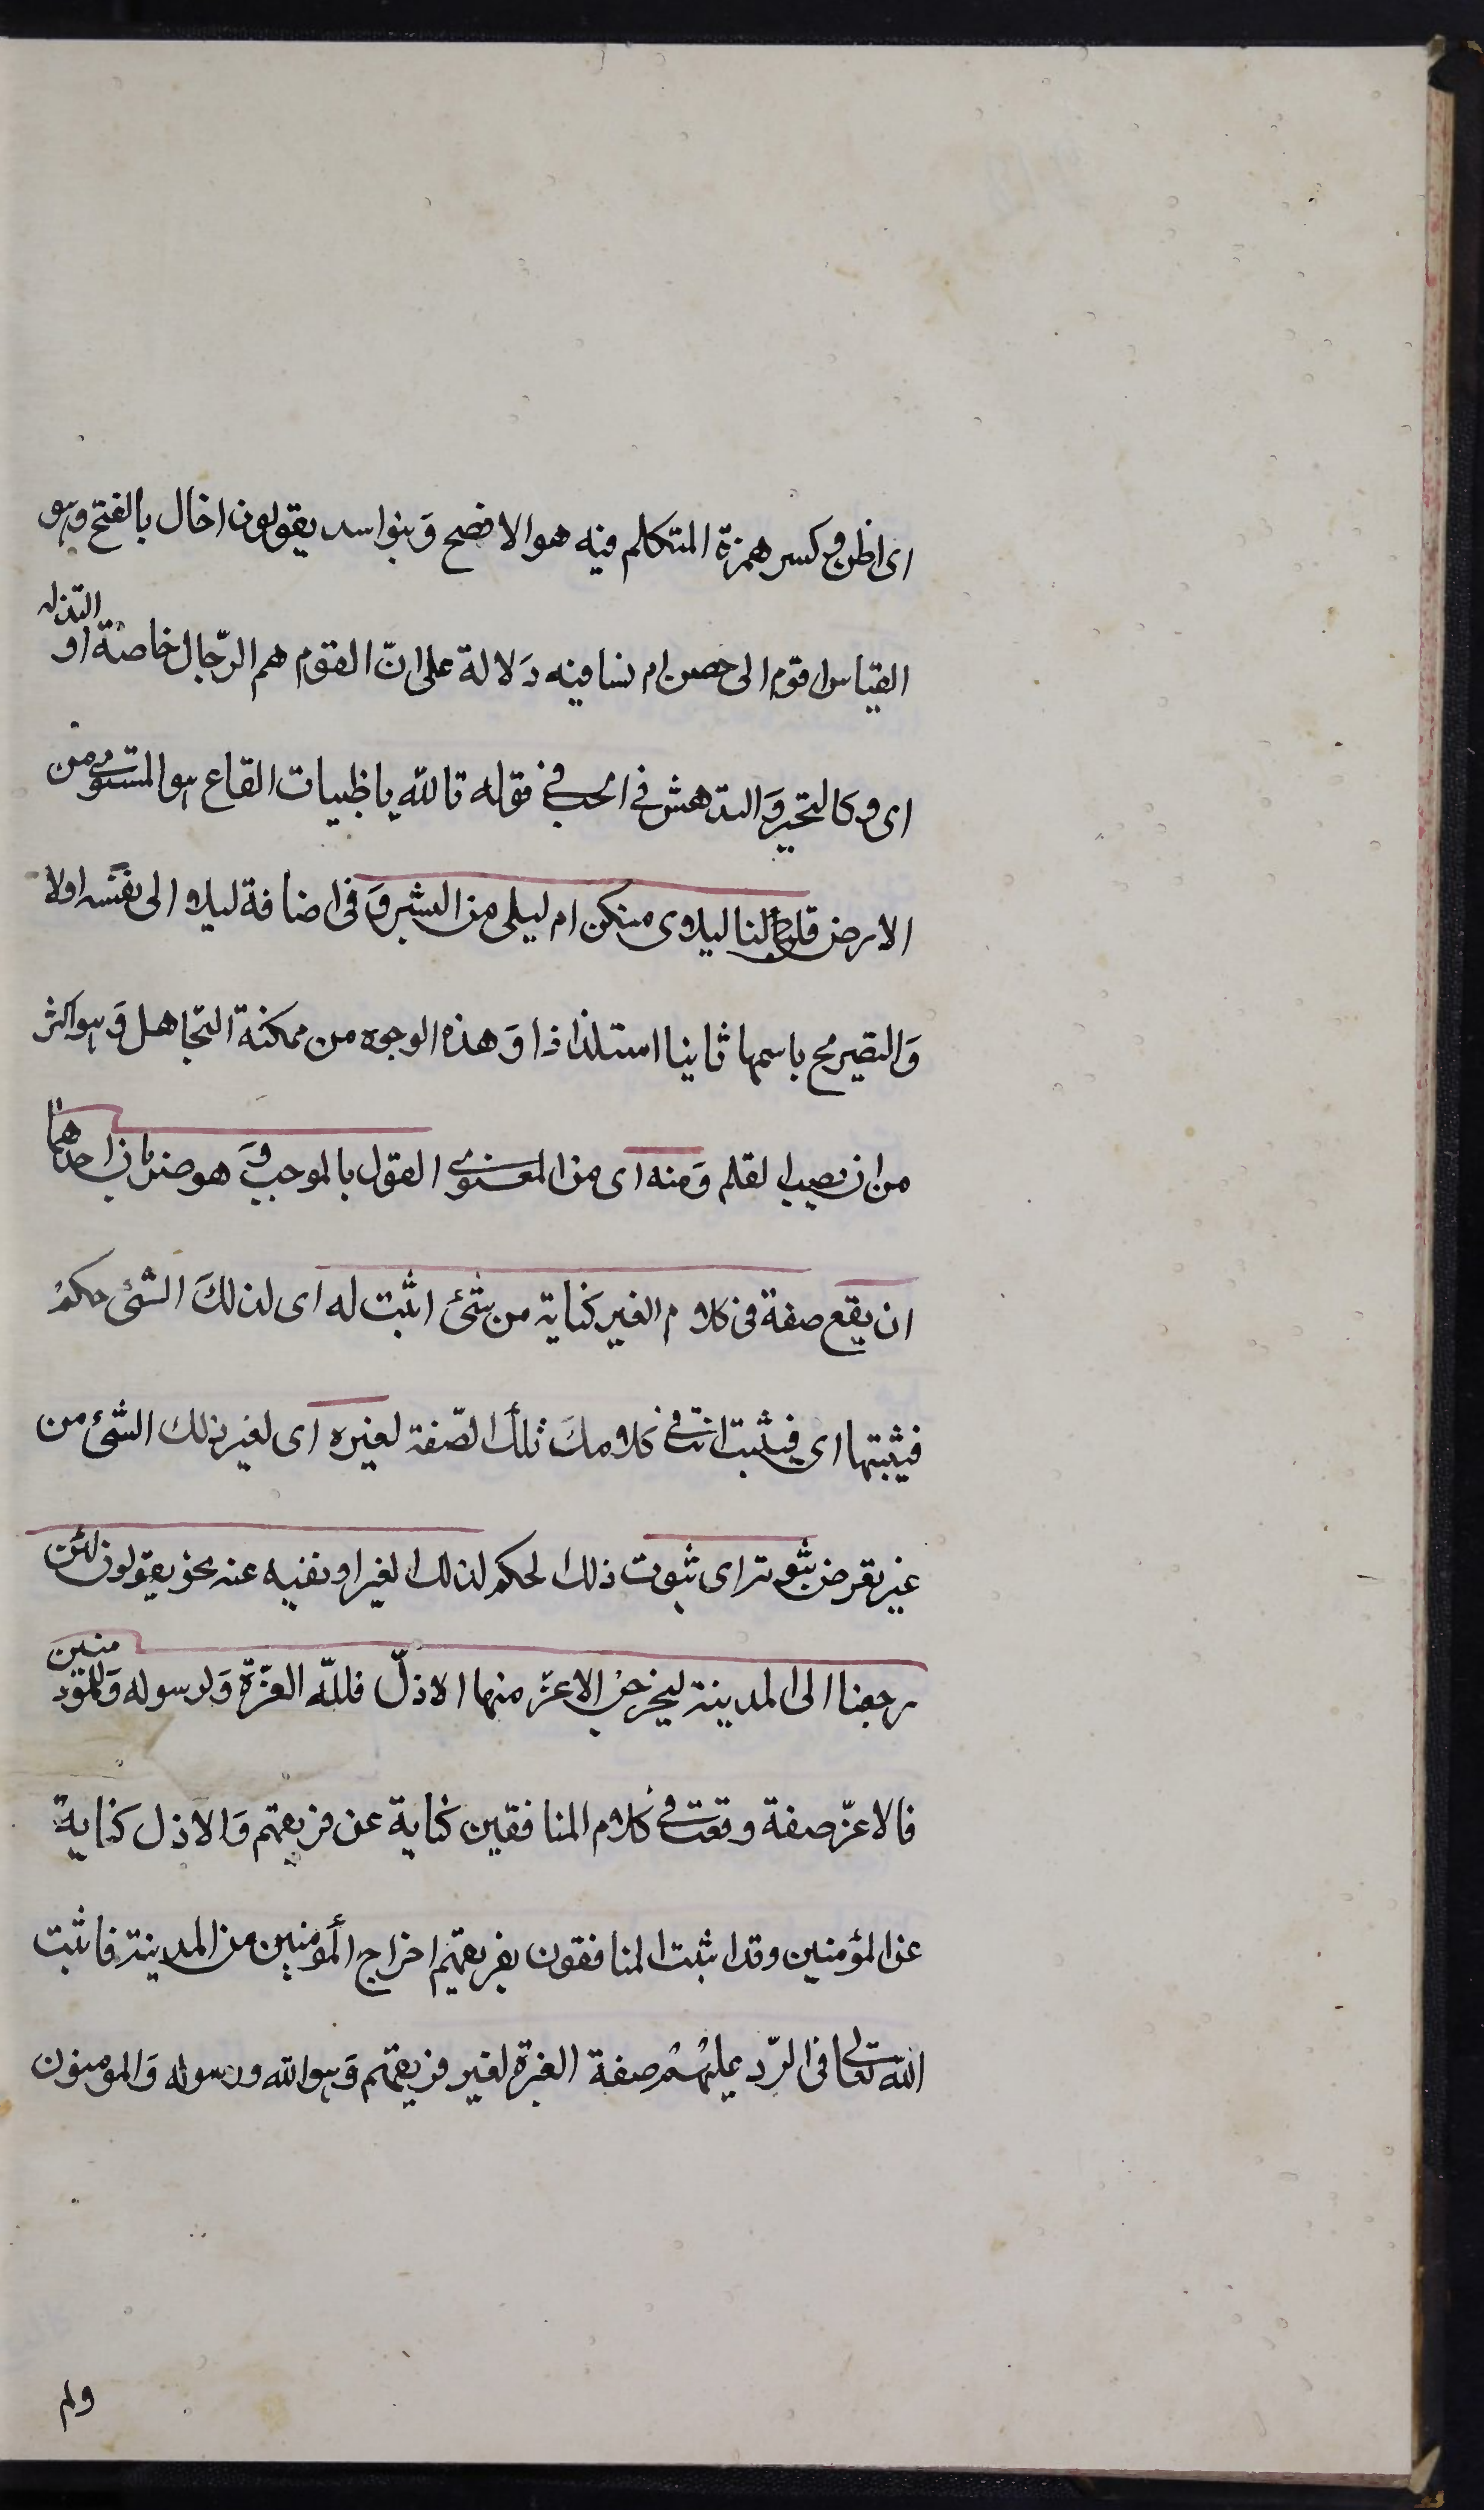 اى اظن وكسر همزة المتكلم فيه هو الافصح وَبنوا سد يقولون اخال بالفتح وهو
القياس اقوم الى حصن ام نسا فيه دَلالة على انّ القوم هم الرّجال خاصة او التدله
اى وكالتحير وَالتدهش فى الحب فى قوله تالله يا ظبيات القاع هو المستوى من
الارض قلن لنا ليلاى منكن ام ليلى من البشر وَفى اضافة ليلا الى نفسه اولا
وَالتصريح باسمها ثانيا استلذاذا وَهذه الوجوه من ممكنة التجاهل وَهو اكثر
من ان نصيب القلم وَمنه اى من المعنوى القول بالموجب وَهو ضربان احدهما
ان يقع صفة فى كلام الغير كناية من شئ اثبت له اى لذلكَ الشئ حكم
فيثبتها اى فيثبت انت فى كلامكَ تلك الصّفة لغيره اى لغير ذلك الشئ من
غير تعرض بثبوته اى ثبوت ذلك الحكم لذلك الغير او نفيه عنه نحو يقولون لئن
رجعنا الى المدينة ليخرجن الاعز منها الاذلّ فللّه العزّة وَلرسوله وَللمؤمنين
فالاعزّ صفة وقعت فى كلام المنافقين كناية عن فريقهم وَالاذل كناية
عن المؤمنين وقد اثبت المنافقون لفريقهم اخراج المؤمنين من المدينة فاثبت
اللّه تعالى فى الرّد عليهم صفة العزة لغير فريقهم وَهو الله ورسوله وَالمومنون
ولم